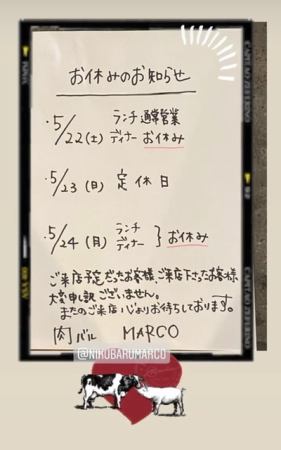 お休みのお知らせ
・5/22(土) ランチ 通常営業
ディナー お休み
・5/23(日) 定休日
・5/24(月) ランチ
ディナー } お休み
ご来店予定だったお客様、ご来店下さったお客様
大変申訳ございません。
またのご来店心よりお待ちしております。
肉バル MARCO
@NIKUBARUMARCO